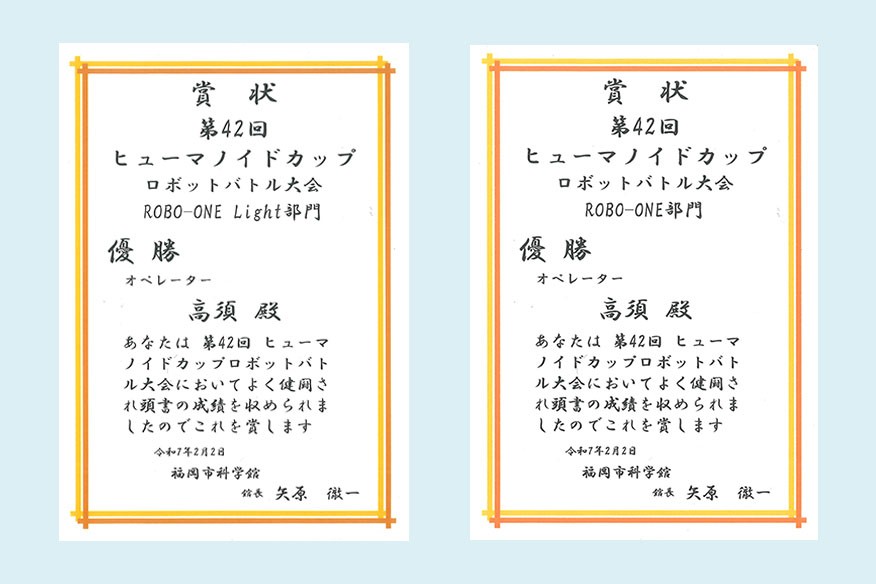 賞 状
第42回
ヒューマノイドカップ
ロボットバトル大会
ROBO-ONE Light部門
優 勝
オペレーター
高須 殿
あなたは 第42回 ヒューマ
ノイドカップロボットバト
ル大会においてよく健闘さ
れ頭書の成績を収められま
したのでこれを賞します
令和7年2月2日
福岡市科学館
館長 矢原 徹一
賞 状
第42回
ヒューマノイドカップ
ロボットバトル大会
ROBO-ONE部門
優 勝
オペレーター
高須 殿
あなたは 第42回 ヒューマ
ノイドカップロボットバト
ル大会においてよく健闘さ
れ頭書の成績を収められま
したのでこれを賞します
令和7年2月2日
福岡市科学館
館長 矢原 徹一